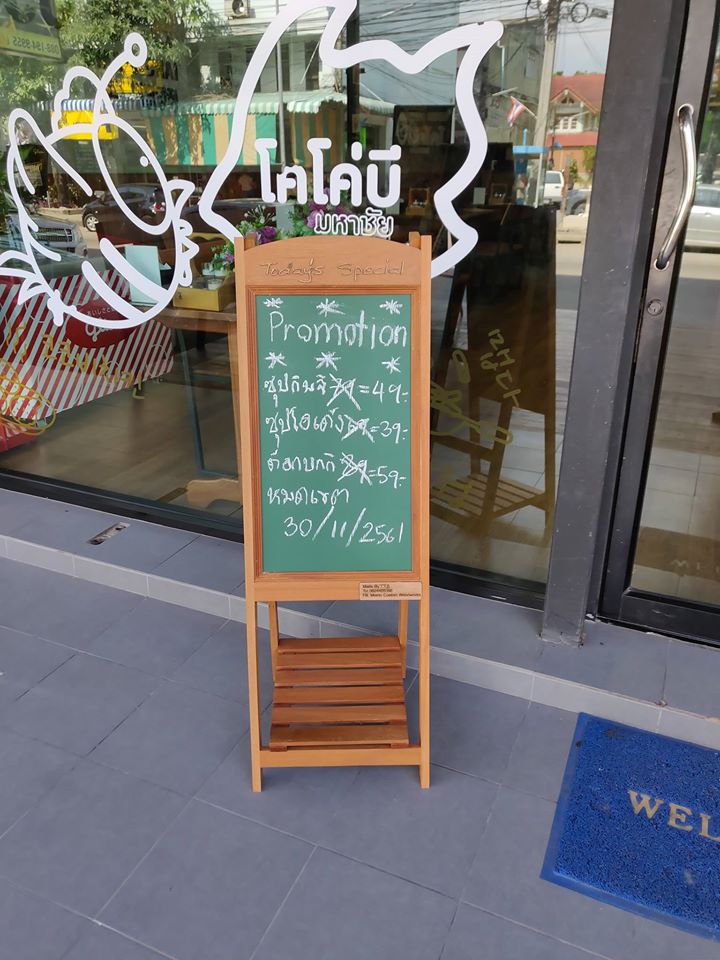 โคโค่บี
มหาชัย
Today's Special
Promotion
ซุปกิมจิ 79 = 49.-
ซุปไอเด้ง = 39.-
ต๊อกบกกิ 89 = 59.-
หมดเขต
30/11/2561
WEL